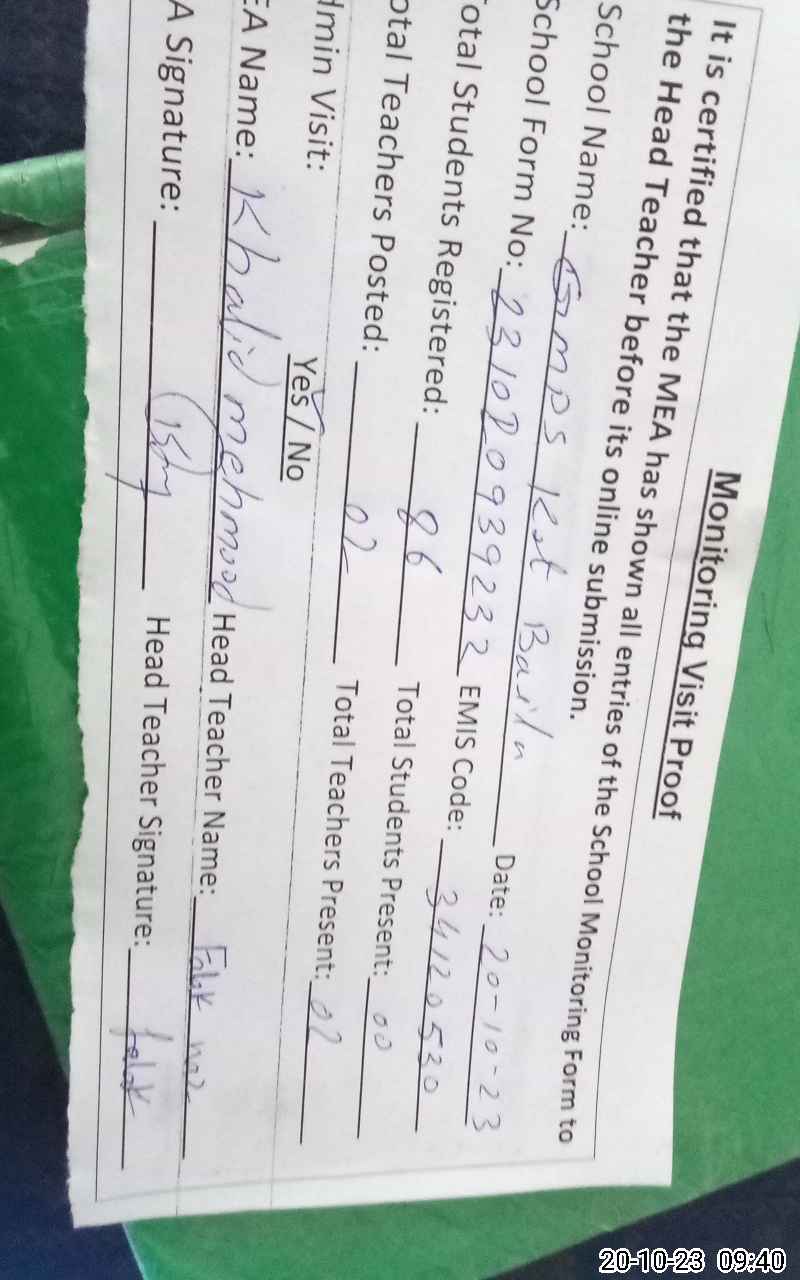 Monitoring Visit Proof
It is certified that the MEA has shown all entries of the School Monitoring Form to
the Head Teacher before its online submission.
School Name: GMPS Kot Date: 20-10-23
School Form No: 231020939232 EMIS Code: 34120530
otal Students Registered: 86 Total Students Present: 00
otal Teachers Posted: 02 Total Teachers Present: 02
dmin Visit: Yes / No
EA Name: Khalid mehmood Head Teacher Name: Falak
A Signature: Head Teacher Signature: falak
20-10-23 09:40